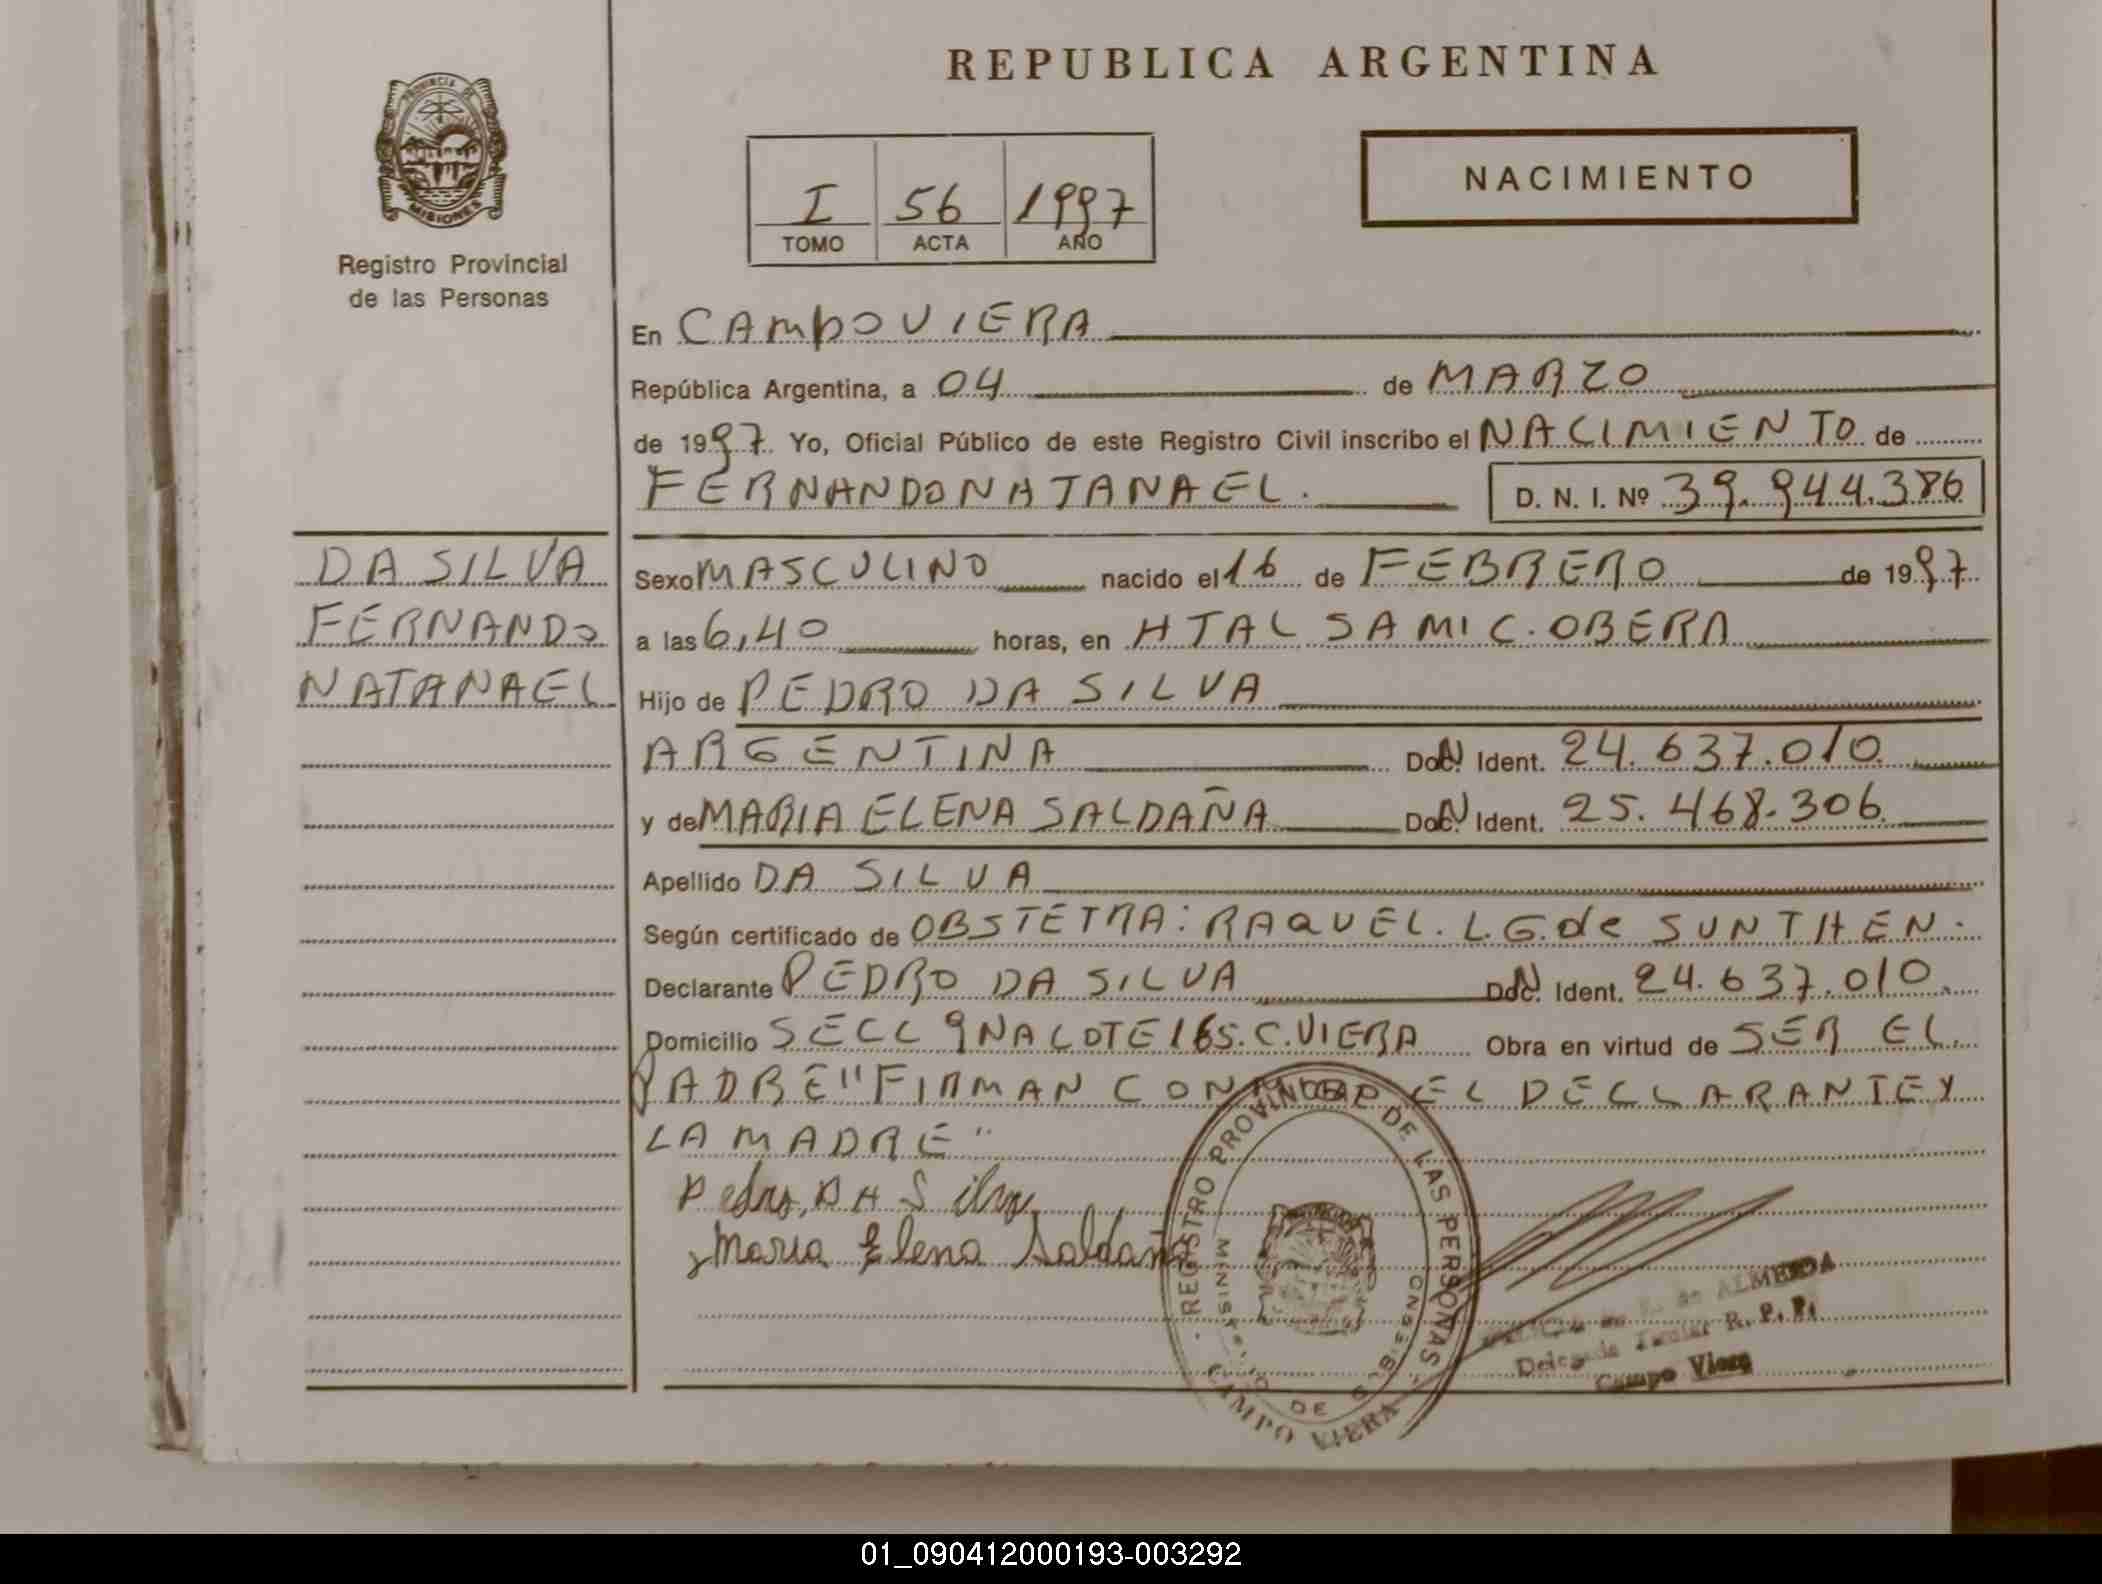 REPUBLICA ARGENTINA
PROVINCIA DE
MISIONES
Registro Provincial
de las Personas
I 56 1997
TOMO ACTA AÑO
NACIMIENTO
En CAMPO VIERA
República Argentina, a 04 de MARZO
de 1997. Yo, Oficial Público de este Registro Civil inscribo el NACIMIENTO de
FERNANDO NATANAEL. D. N. I. Nº 39.944.386
DA SILVA
FERNANDO
NATANAEL
Sexo MASCULINO nacido el 16 de FEBRERO de 1997.
a las 6,40 horas, en HTAL SAMIC. OBERA
Hijo de PEDRO DA SILVA
ARGENTINA Doc. Ident. 24.637.010
y de MARIA ELENA SALDAÑA Doc. Ident. 25.468.306
Apellido DA SILVA
Según certificado de OBSTETRA: RAQUEL. L.G. de SUNTHEN.
Declarante PEDRO DA SILVA Doc. Ident. 24.637.010
Domicilio SECC 9NA LOTE 165. C. VIERA Obra en virtud de SER EL
PADRE "FIRMAN CONMIGO EL DECLARANTE Y
LA MADRE"
Pedro, DA Silva
Maria Elena Saldaña
REGISTRO PROVINCIAL DE LAS PERSONAS
MINISTERIO DE GOB.
CAMPO VIERA
de ALMEIDA
Delegada Titular R. P. P.
Campo Viera
01_090412000193-003292